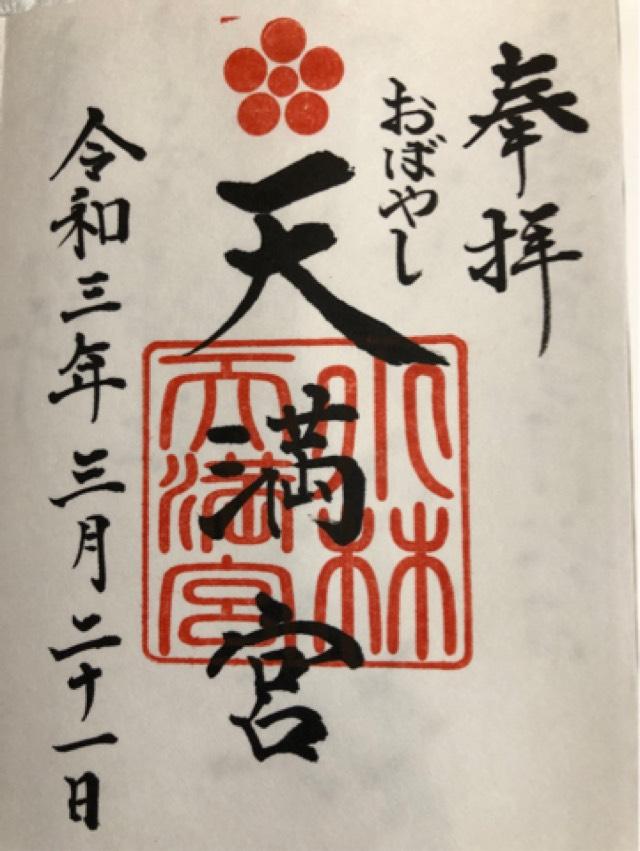 奉拝
おばやし
天満宮
小林
天満宮
令和三年三月二十一日